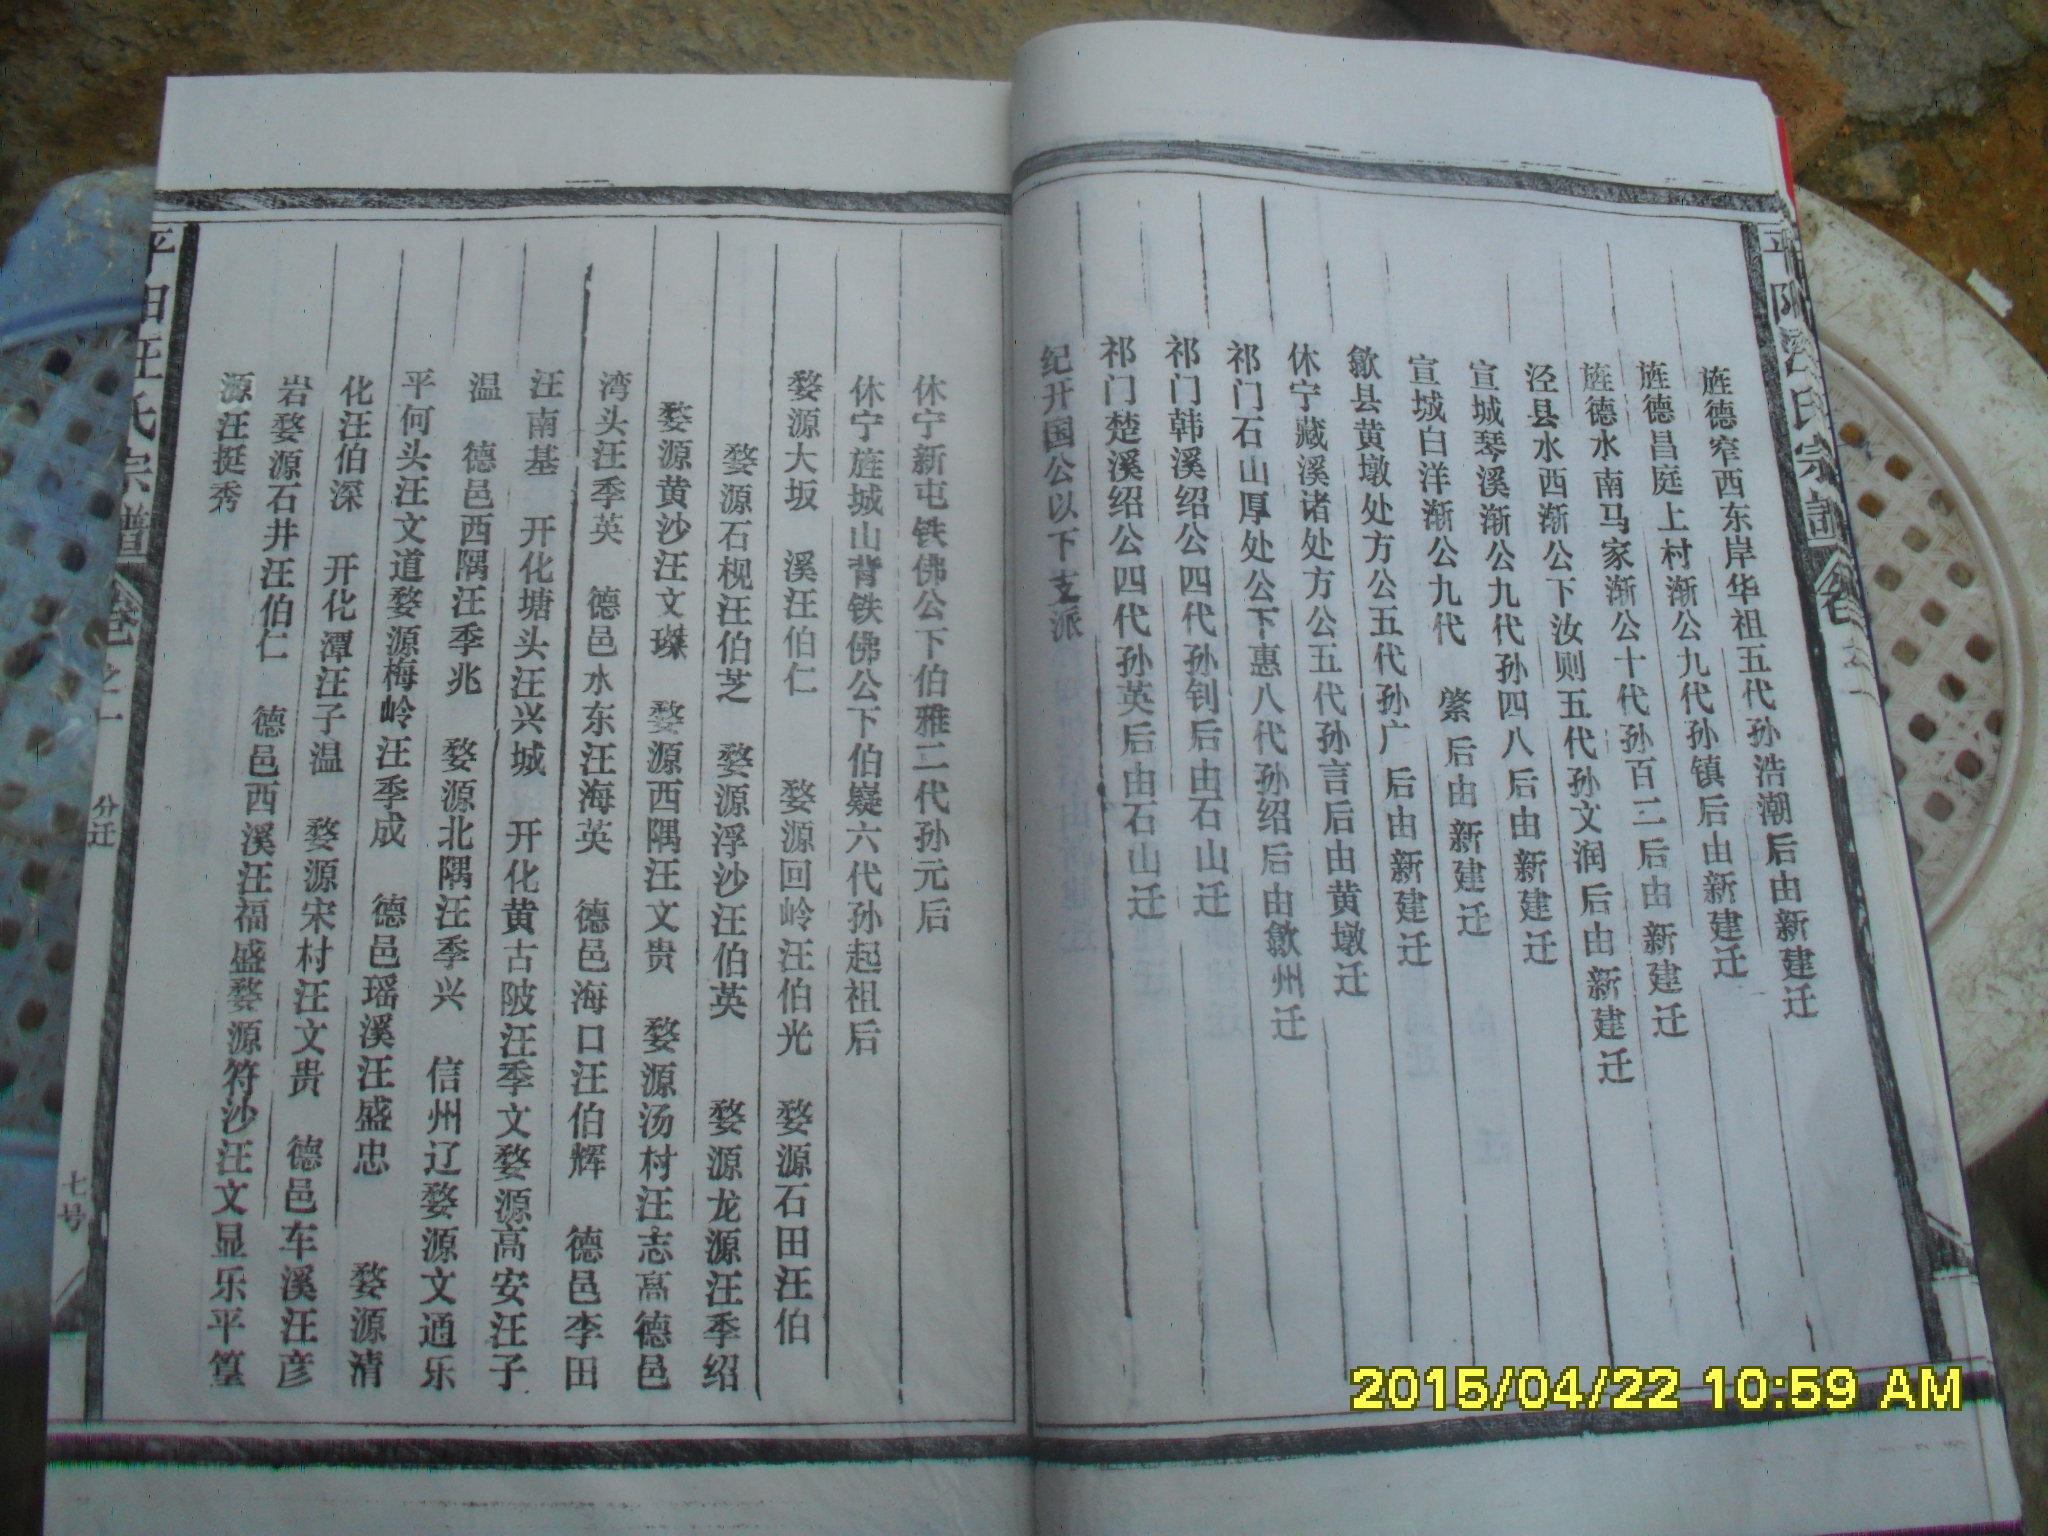 平阳汪氏宗谱
卷之一
旌德窄西东岸华祖五代孙浩潮后由新建迁
旌德昌庭上村渐公九代孙镇后由新建迁
旌德水南马家渐公十代孙百二后由新建迁
泾县水西渐公下汝则五代孙文润后由新建迁
宣城琴溪渐公九代孙四八后由新建迁
宣城白洋渐公九代 綮后由新建迁
歙县黄墩处方公五代孙广后由新建迁
休宁藏溪诸处方公五代孙言后由黄墩迁
祁门石山厚处公下惠八代孙绍后由歙州迁
祁门韩溪绍公四代孙钊后由石山迁
祁门楚溪绍公四代孙英后由石山迁
纪开国公以下支派
休宁新屯铁佛公下伯雅二代孙元后
休宁旌城山背铁佛公下伯嶷六代孙起祖后
婺源大坂 溪汪伯仁 婺源回岭汪伯光 婺源石田汪伯
婺源石枧汪伯芝 婺源浮沙汪伯英 婺源龙源汪季绍
婺源黄沙汪文璨 婺源西隅汪文贵 婺源汤村汪志高德邑
湾头汪季英 德邑水东汪海英 德邑海口汪伯辉 德邑李田
汪南基 开化塘头汪兴城 开化黄古陂汪季文婺源高安汪子
温 德邑西隅汪季兆 婺源北隅汪季兴 信州辽婺源文通乐
平何头汪文道婺源梅岭汪季成 德邑瑶溪汪盛忠 婺源清
化汪伯深 开化潭汪子温 婺源宋村汪文贵 德邑车溪汪彦
岩婺源石井汪伯仁 德邑西溪汪福盛婺源符沙汪文显乐平篁
源汪挺秀
平阳汪氏宗谱
卷之一
分迁
七号
2015/04/22 10:59 AM